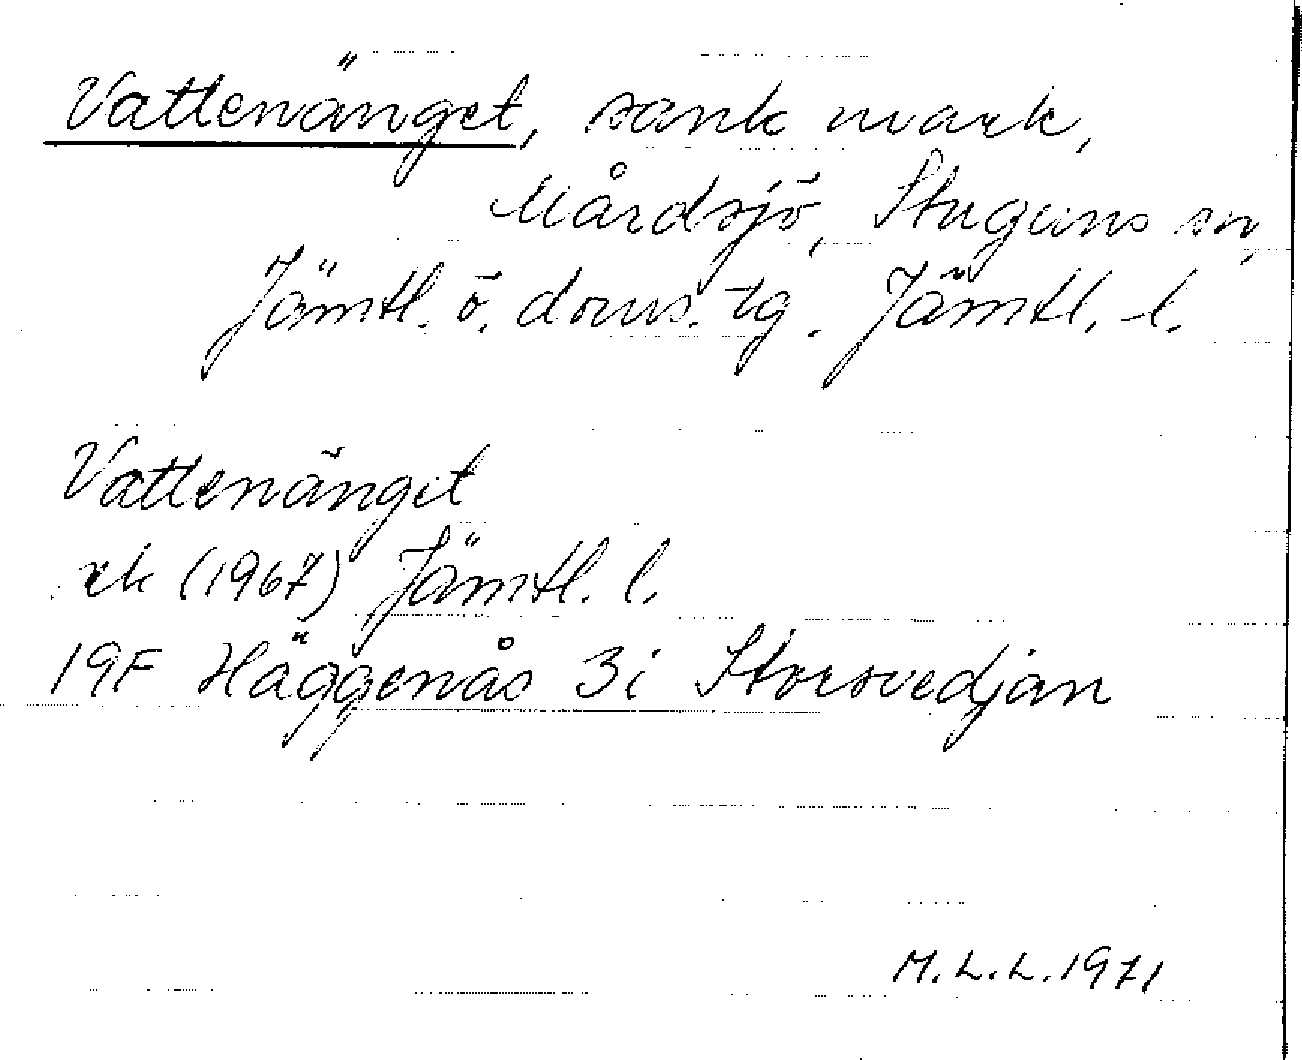 Vattenänget, sank mark,
Mårdsjö, Stuguns sn,
Jämtl. ö. doms. tg. Jämtl. l.
Vattenänget
ek (1967) Jämtl. l.
19F Häggenås 3i Storsvedjan
M.L.L. 1971